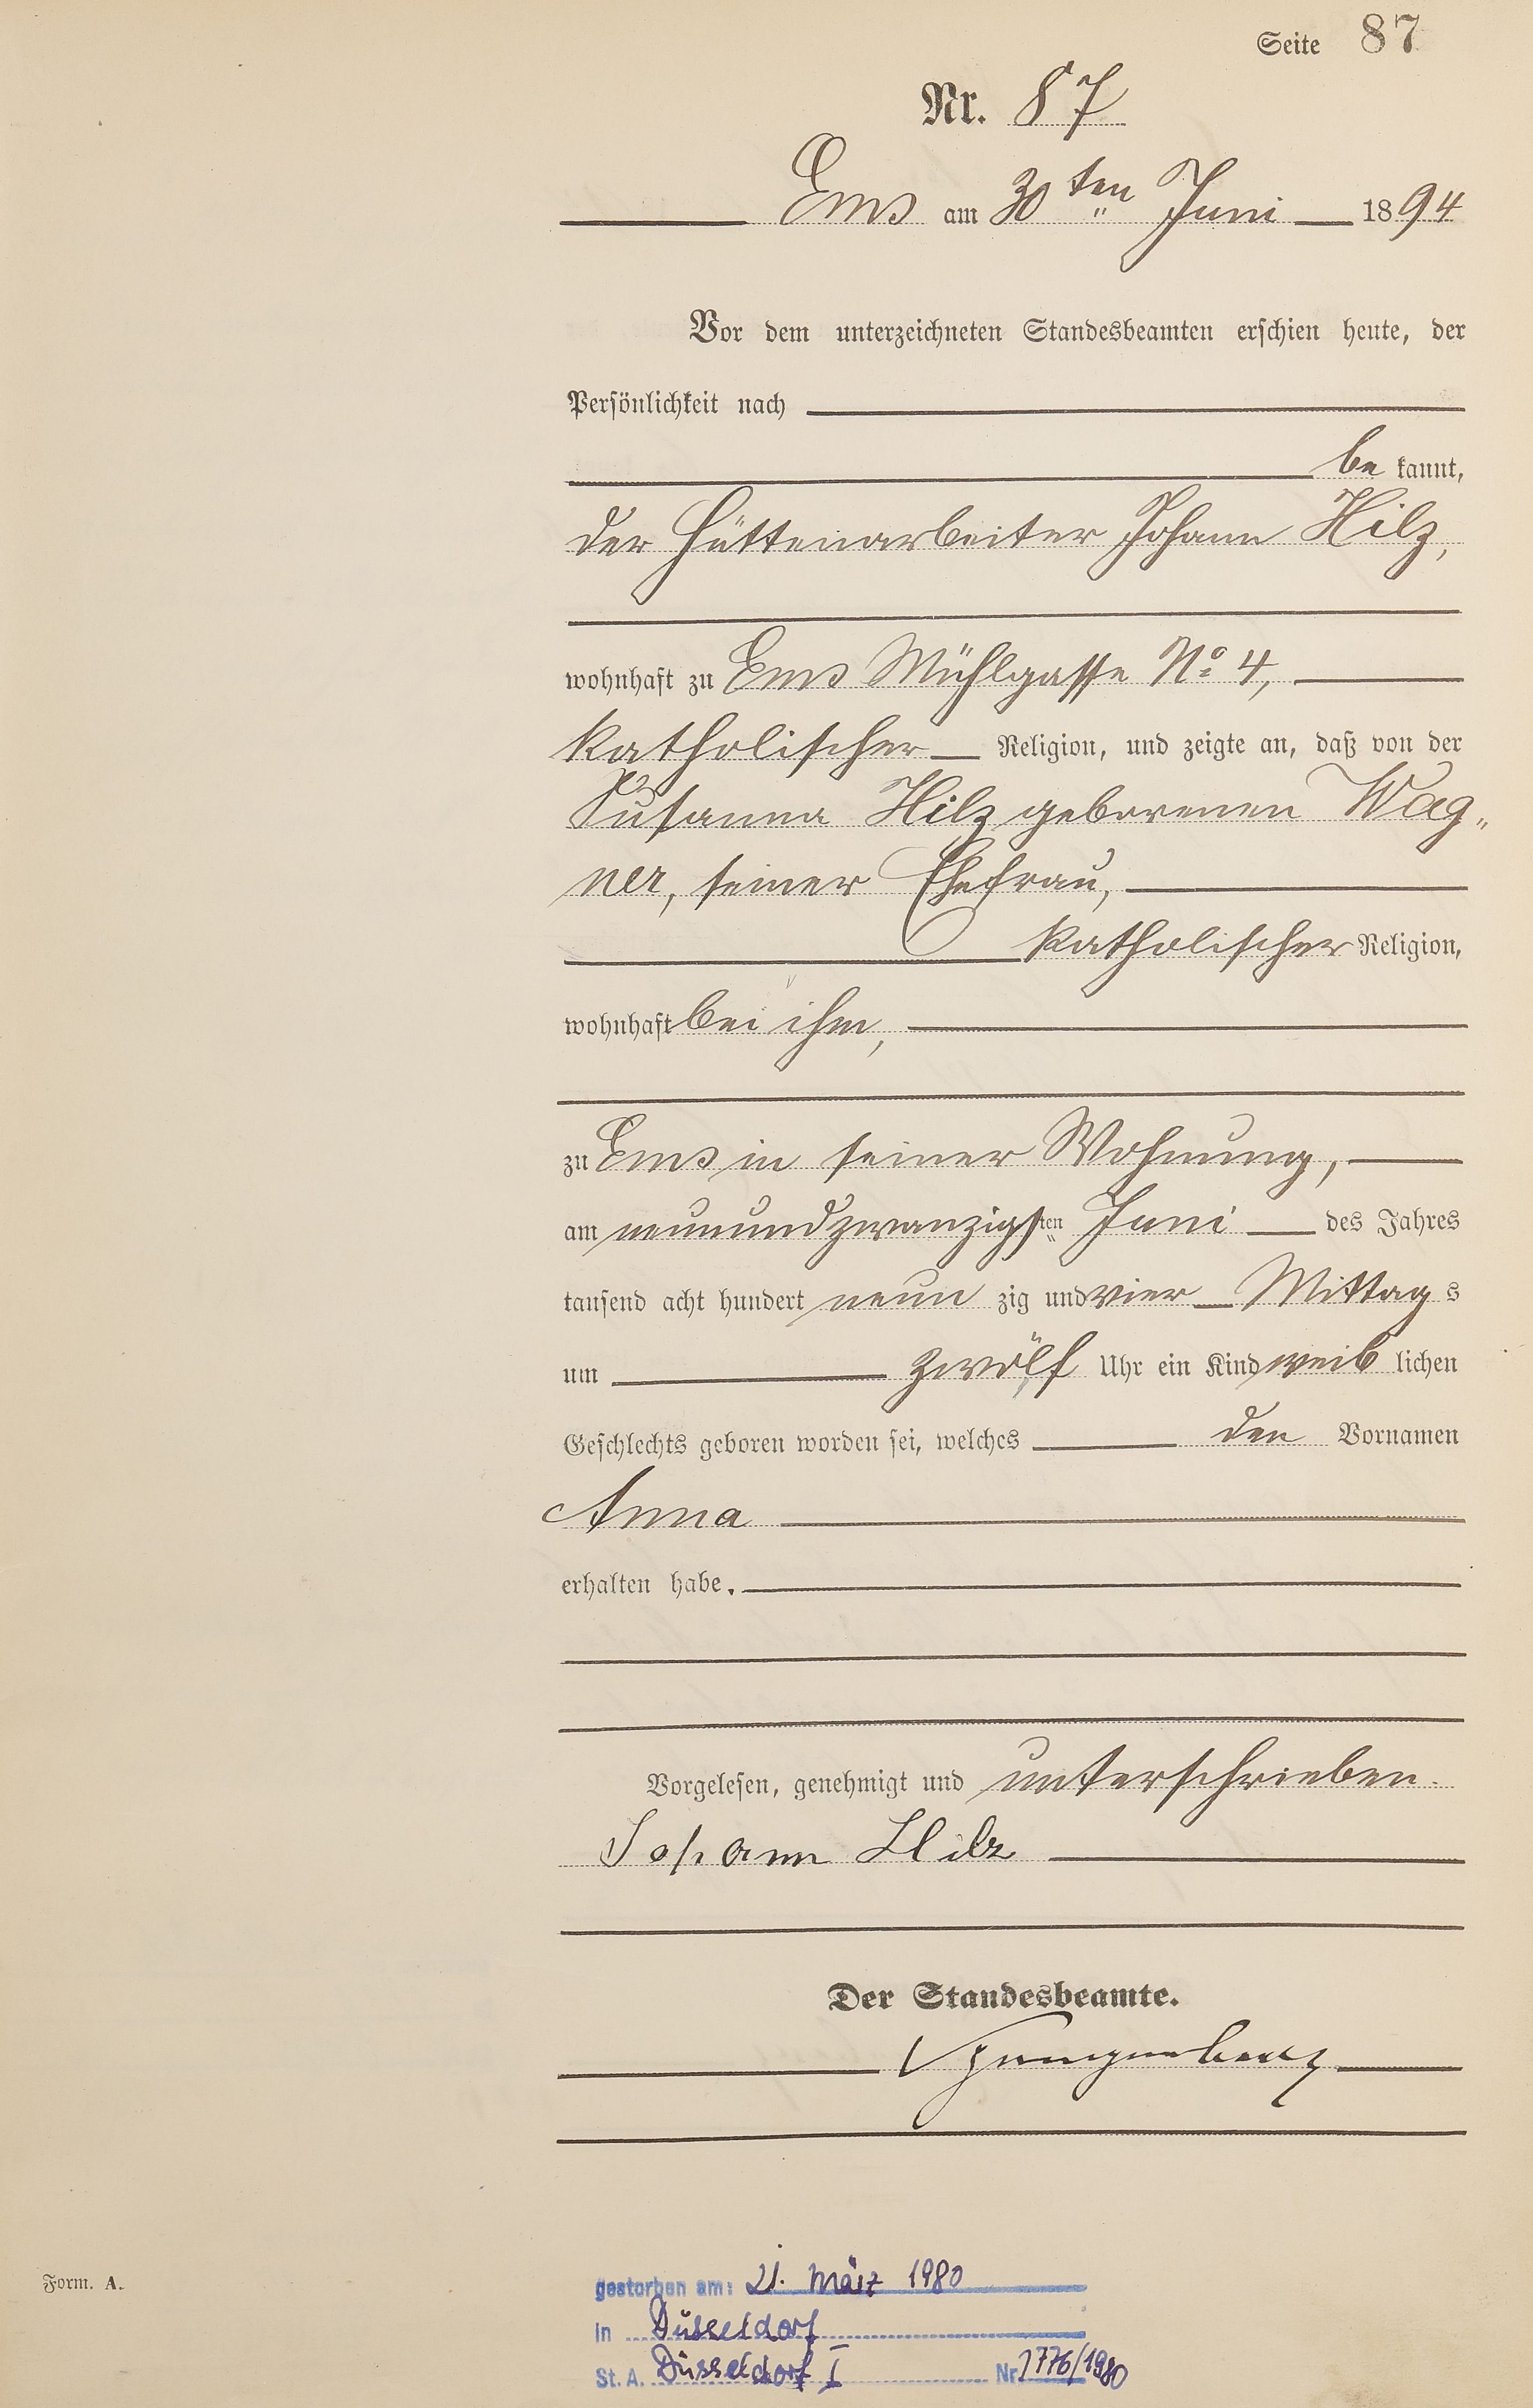 Seite 87
Nr. 87
Ems am 30ten Juni 1894
Vor dem unterzeichneten Standesbeamten erschien heute, der
Persönlichkeit nach
be kannt,
der Hüttenarbeiter Johann Hilz,
wohnhaft zu Ems Mühlgasse No 4,
katholischer Religion, und zeigte an, daß von der
Susanna Hilz geborenen Wag-
ner, seiner Ehefrau,
katholischer Religion,
wohnhaft bei ihm,
zu Ems in seiner Wohnung,
am neunundzwanzigsten Juni des Jahres
tausend acht hundert neun zig und vier Mittag s
um zwölf Uhr ein Kind weib lichen
Geschlechts geboren worden sei, welches den Vornamen
Anna
erhalten habe.
Vorgelesen, genehmigt und unterschrieben.
Johann Hilz
Der Standesbeamte.
Form. A.
gestorben am: 21. März 1980
in Düsseldorf
St. A. Düsseldorf I Nr. 1776/1980